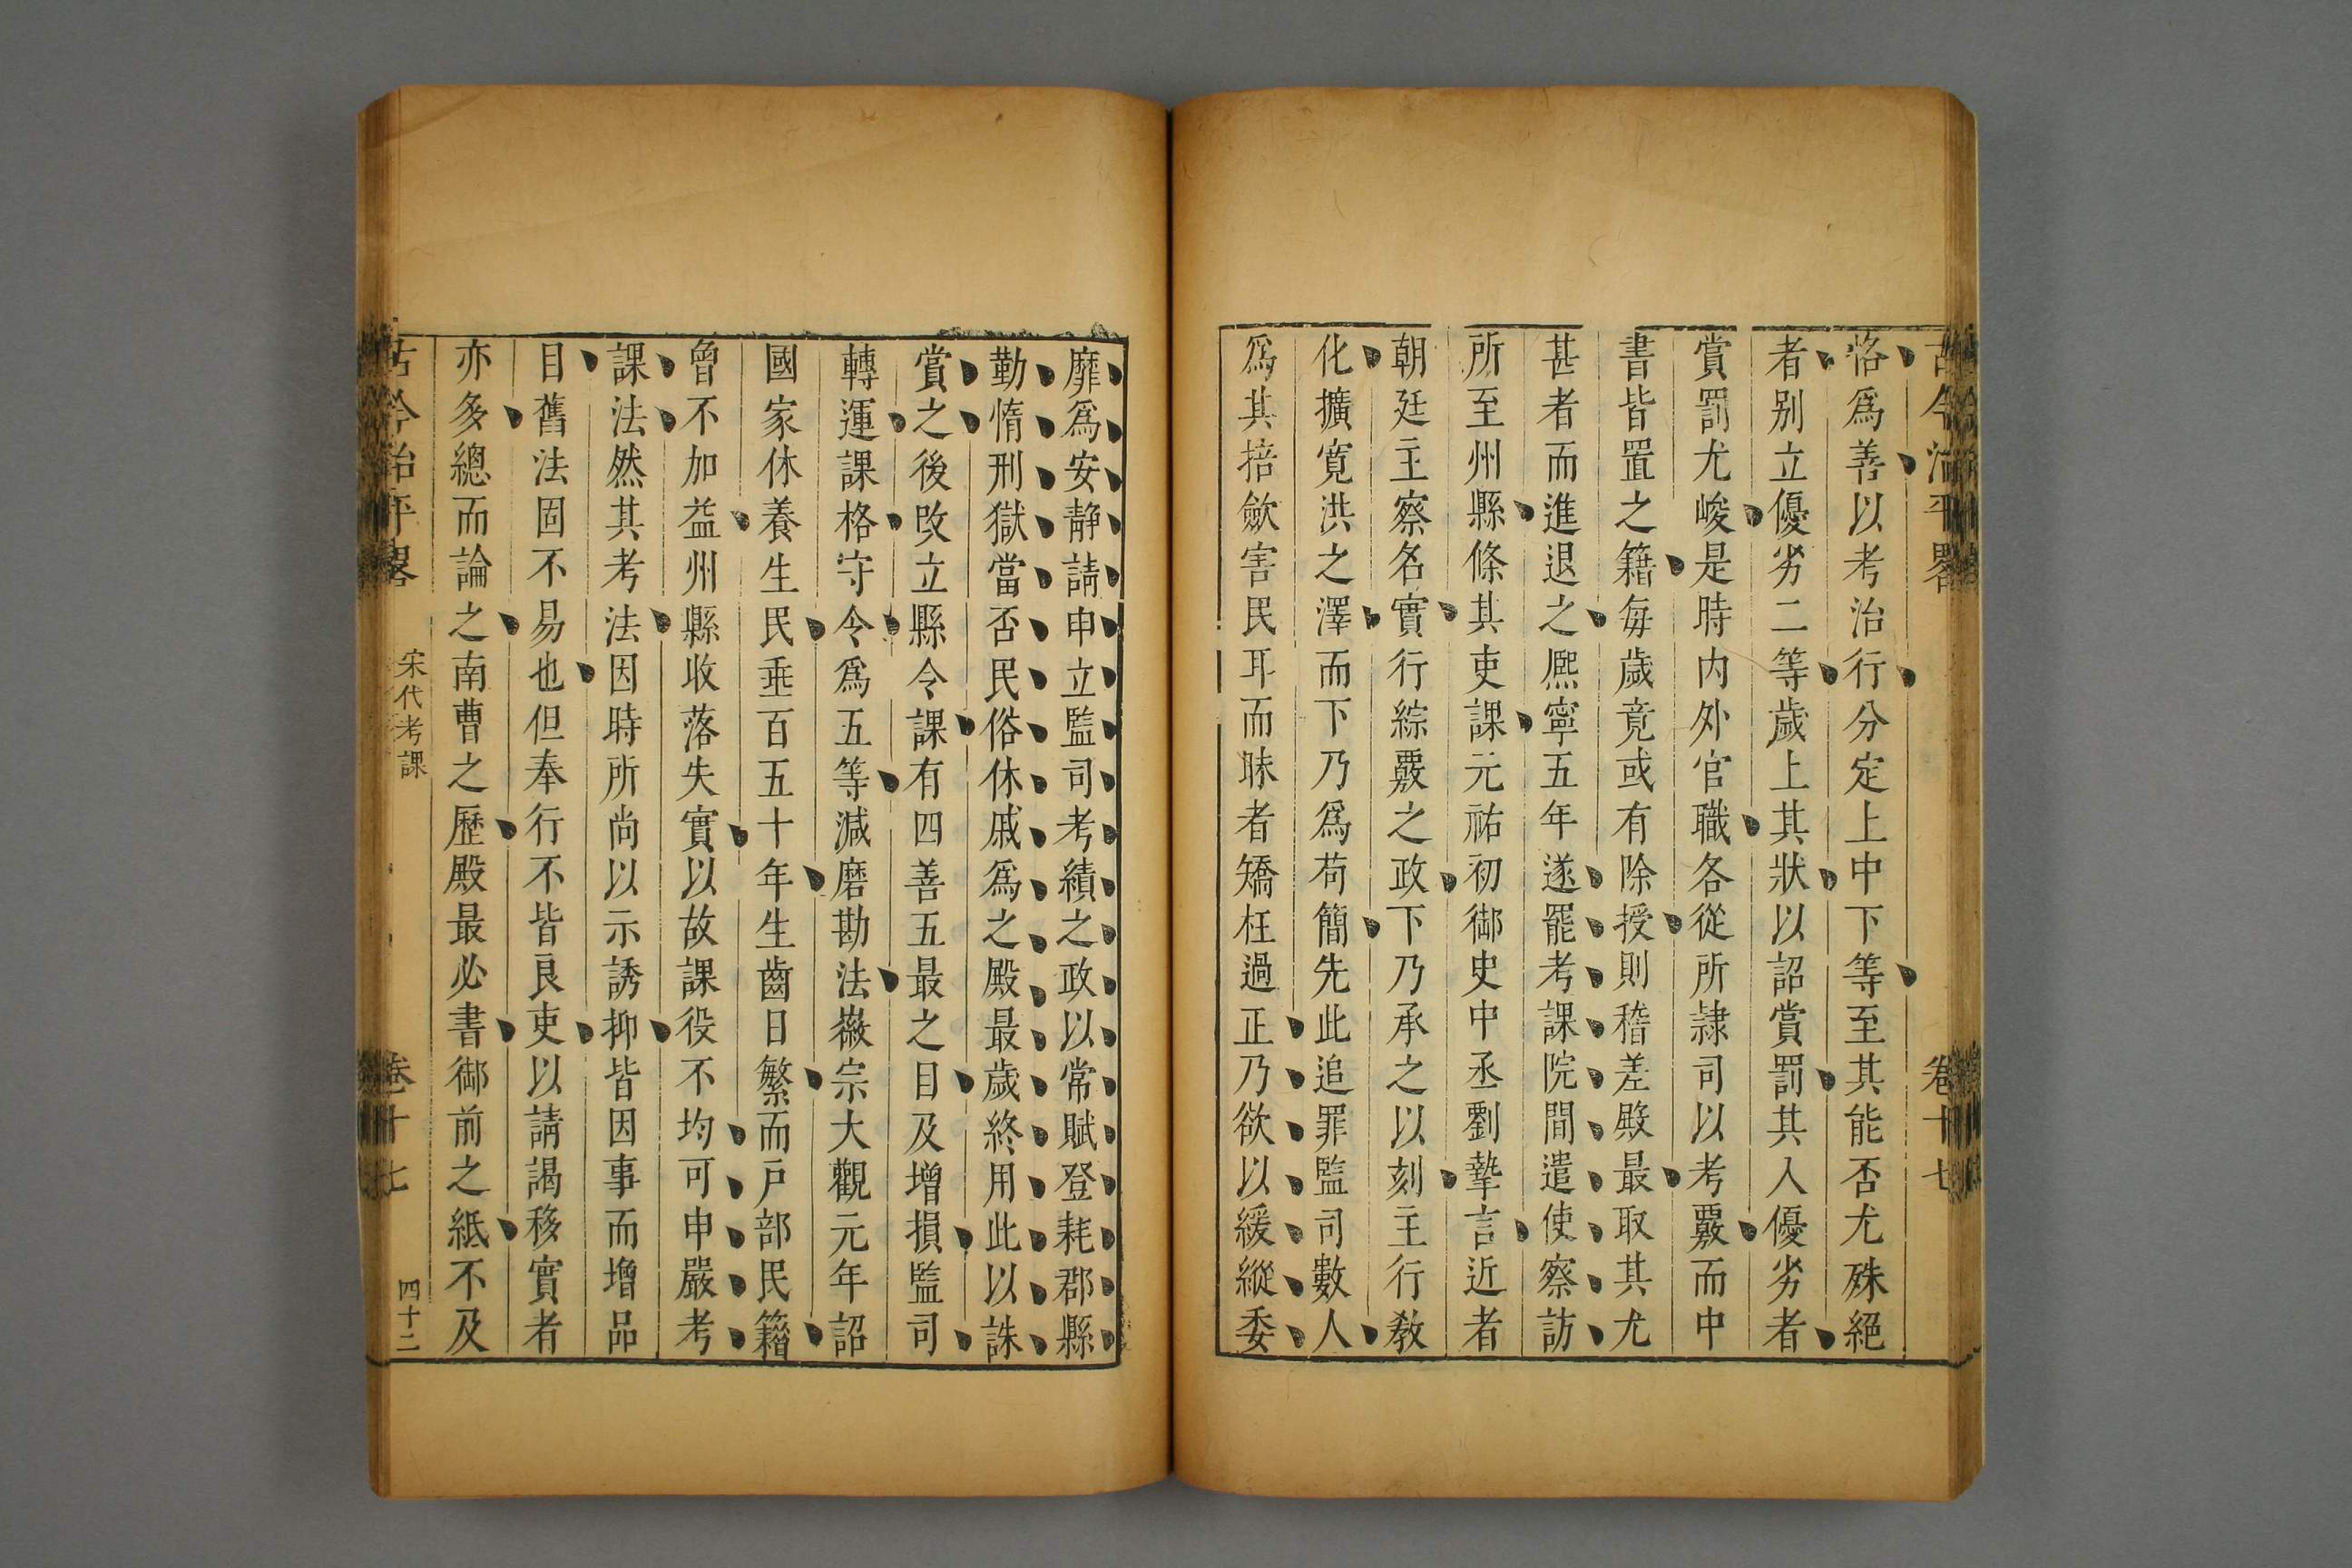 古今治平畧 卷十七
恪爲善以考治行分定上中下等至其能否尤殊絕
者别立優劣二等歲上其狀以詔賞罰其入優劣者
賞罰尤峻是時内外官職各從所隷司以考覈而中
書皆置之籍每歲竟或有除授則稽差殿最取其尤
甚者而進退之熈寧五年遂罷考課院間遣使察訪
所至州縣條其吏課元祐初御史中丞劉摯言近者
朝廷主察名實行綜覈之政下乃承之以刻主行教
化擴寬洪之澤而下乃爲苟簡先此追罪監司數人
爲其掊歛害民耳而昧者矯枉過正乃欲以緩縱委
靡爲安静請申立監司考績之政以常賦登耗郡縣
勤惰刑獄當否民俗休戚爲之殿最歲終用此以誅
賞之後改立縣令課有四善五最之目及增損監司
轉運課格守令爲五等減磨勘法徽宗大觀元年詔
國家休養生民垂百五十年生齒日繁而戸部民籍
曾不加益州縣收落失實以故課役不均可申嚴考
課法然其考法因時所尚以示誘抑皆因事而增品
目舊法固不易也但奉行不皆良吏以請謁移實者
亦多總而論之南曹之歷殿最必書御前之紙不及
古今治平畧 宋代考課 卷十七 四十二